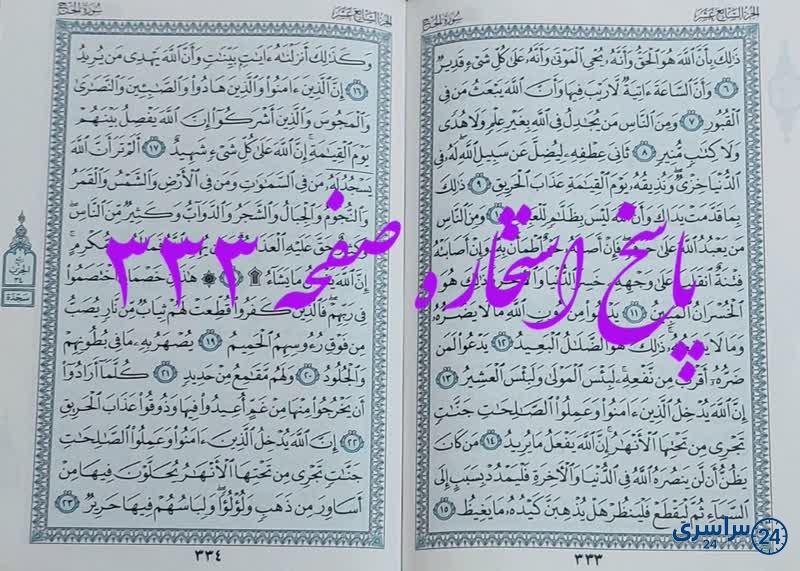 الجزء السابع عشر
سورة الحج
ذَٰلِكَ بِأَنَّ ٱللَّهَ هُوَ ٱلْحَقُّ وَأَنَّهُۥ يُحْىِ ٱلْمَوْتَىٰ وَأَنَّهُۥ عَلَىٰ كُلِّ شَىْءٍ قَدِيرٌ
٦ وَأَنَّ ٱلسَّاعَةَ ءَاتِيَةٌ لَّا رَيْبَ فِيهَا وَأَنَّ ٱللَّهَ يَبْعَثُ مَن فِى
ٱلْقُبُورِ ٧ وَمِنَ ٱلنَّاسِ مَن يُجَٰدِلُ فِى ٱللَّهِ بِغَيْرِ عِلْمٍ وَلَا هُدًى
وَلَا كِتَٰبٍ مُّنِيرٍ ٨ ثَانِىَ عِطْفِهِۦ لِيُضِلَّ عَن سَبِيلِ ٱللَّهِ لَهُۥ فِى
ٱلدُّنْيَا خِزْىٌ وَنُذِيقُهُۥ يَوْمَ ٱلْقِيَٰمَةِ عَذَابَ ٱلْحَرِيقِ ٩ ذَٰلِكَ
بِمَا قَدَّمَتْ يَدَاكَ وَأَنَّ ٱللَّهَ لَيْسَ بِظَلَّٰمٍ ١٠ وَمِنَ ٱلنَّاسِ
مَن يَعْبُدُ ٱللَّهَ عَلَىٰ فَإِنْ أَصَابَهُۥ ٱطْمَأَنَّ بِهِۦ وَإِنْ أَصَابَتْهُ
فِتْنَةٌ ٱنقَلَبَ عَلَىٰ وَجْهِهِۦ خَسِرَ ٱلدُّنْيَا وَٱلْءَاخِرَةَ ذَٰلِكَ هُوَ
ٱلْخُسْرَانُ ٱلْمُبِينُ ١١ يَدْعُوا۟ مِن دُونِ ٱللَّهِ مَا لَا يَضُرُّهُۥ
وَمَا لَا ذَٰلِكَ هُوَ ٱلضَّلَٰلُ ٱلْبَعِيدُ ١٢ يَدْعُوا۟ لَمَن
ضَرُّهُۥٓ أَقْرَبُ مِن نَّفْعِهِۦ لَبِئْسَ ٱلْمَوْلَىٰ وَلَبِئْسَ ٱلْعَشِيرُ ١٣
إِنَّ ٱللَّهَ يُدْخِلُ ٱلَّذِينَ ءَامَنُوا۟ وَعَمِلُوا۟ ٱلصَّٰلِحَٰتِ جَنَّٰتٍ
تَجْرِى مِن تَحْتِهَا ٱلْأَنْهَٰرُ إِنَّ ٱللَّهَ يَفْعَلُ مَا يُرِيدُ ١٤ مَن كَانَ
يَظُنُّ أَن لَّن يَنصُرَهُ ٱللَّهُ فِى ٱلدُّنْيَا وَٱلْءَاخِرَةِ فَلْيَمْدُدْ بِسَبَبٍ إِلَى
ٱلسَّمَآءِ ثُمَّ لْيَقْطَعْ فَلْيَنظُرْ هَلْ يُذْهِبَنَّ كَيْدُهُۥ مَا يَغِيظُ ١٥
٣٣٣
الجزء السابع عشر
سورة الحج
وَكَذَٰلِكَ أَنزَلْنَٰهُ ءَايَٰتٍۭ بَيِّنَٰتٍ وَأَنَّ ٱللَّهَ يَهْدِى مَن يُرِيدُ
١٦ إِنَّ ٱلَّذِينَ ءَامَنُوا۟ وَٱلَّذِينَ هَادُوا۟ وَٱلصَّٰبِـِٔينَ وَٱلنَّصَٰرَىٰ
وَٱلْمَجُوسَ وَٱلَّذِينَ أَشْرَكُوٓا۟ إِنَّ ٱللَّهَ يَفْصِلُ بَيْنَهُمْ
يَوْمَ ٱلْقِيَٰمَةِ إِنَّ ٱللَّهَ عَلَىٰ كُلِّ شَىْءٍ شَهِيدٌ ١٧ أَلَمْ تَرَ أَنَّ ٱللَّهَ
يَسْجُدُ لَهُۥ مَن فِى ٱلسَّمَٰوَٰتِ وَمَن فِى ٱلْأَرْضِ وَٱلشَّمْسُ وَٱلْقَمَرُ
وَٱلنُّجُومُ وَٱلْجِبَالُ وَٱلشَّجَرُ وَٱلدَّوَآبُّ وَكَثِيرٌ مِّنَ ٱلنَّاسِ
حَقَّ عَلَيْهِ ٱلْعَذَابُ فَمَا لَهُۥ مِن مُّكْرِمٍ
إِنَّ ٱللَّهَ يَفْعَلُ مَا يَشَآءُ هَٰذَانِ خَصْمَانِ ٱخْتَصَمُوا۟
فِى رَبِّهِمْ فَٱلَّذِينَ كَفَرُوا۟ قُطِّعَتْ لَهُمْ ثِيَابٌ مِّن نَّارٍ يُصَبُّ
مِن فَوْقِ رُءُوسِهِمُ ٱلْحَمِيمُ ١٩ يُصْهَرُ بِهِۦ مَا فِى بُطُونِهِمْ
وَٱلْجُلُودُ ٢٠ وَلَهُم مَّقَٰمِعُ مِنْ حَدِيدٍ ٢١ كُلَّمَآ أَرَادُوٓا۟
أَن يَخْرُجُوا۟ مِنْهَا مِنْ غَمٍّ أُعِيدُوا۟ فِيهَا وَذُوقُوا۟ عَذَابَ ٱلْحَرِيقِ
٢٢ إِنَّ ٱللَّهَ يُدْخِلُ ٱلَّذِينَ ءَامَنُوا۟ وَعَمِلُوا۟ ٱلصَّٰلِحَٰتِ
جَنَّٰتٍ تَجْرِى مِن تَحْتِهَا ٱلْأَنْهَٰرُ يُحَلَّوْنَ فِيهَا مِنْ
أَسَاوِرَ مِن ذَهَبٍ وَلُؤْلُؤًا وَلِبَاسُهُمْ فِيهَا حَرِيرٌ ٢٣
٣٣٤
ربع
الحزب
٣٤
سجدة
پاسخ استخاره صفحه ۳۳۳
سراسری
24
24